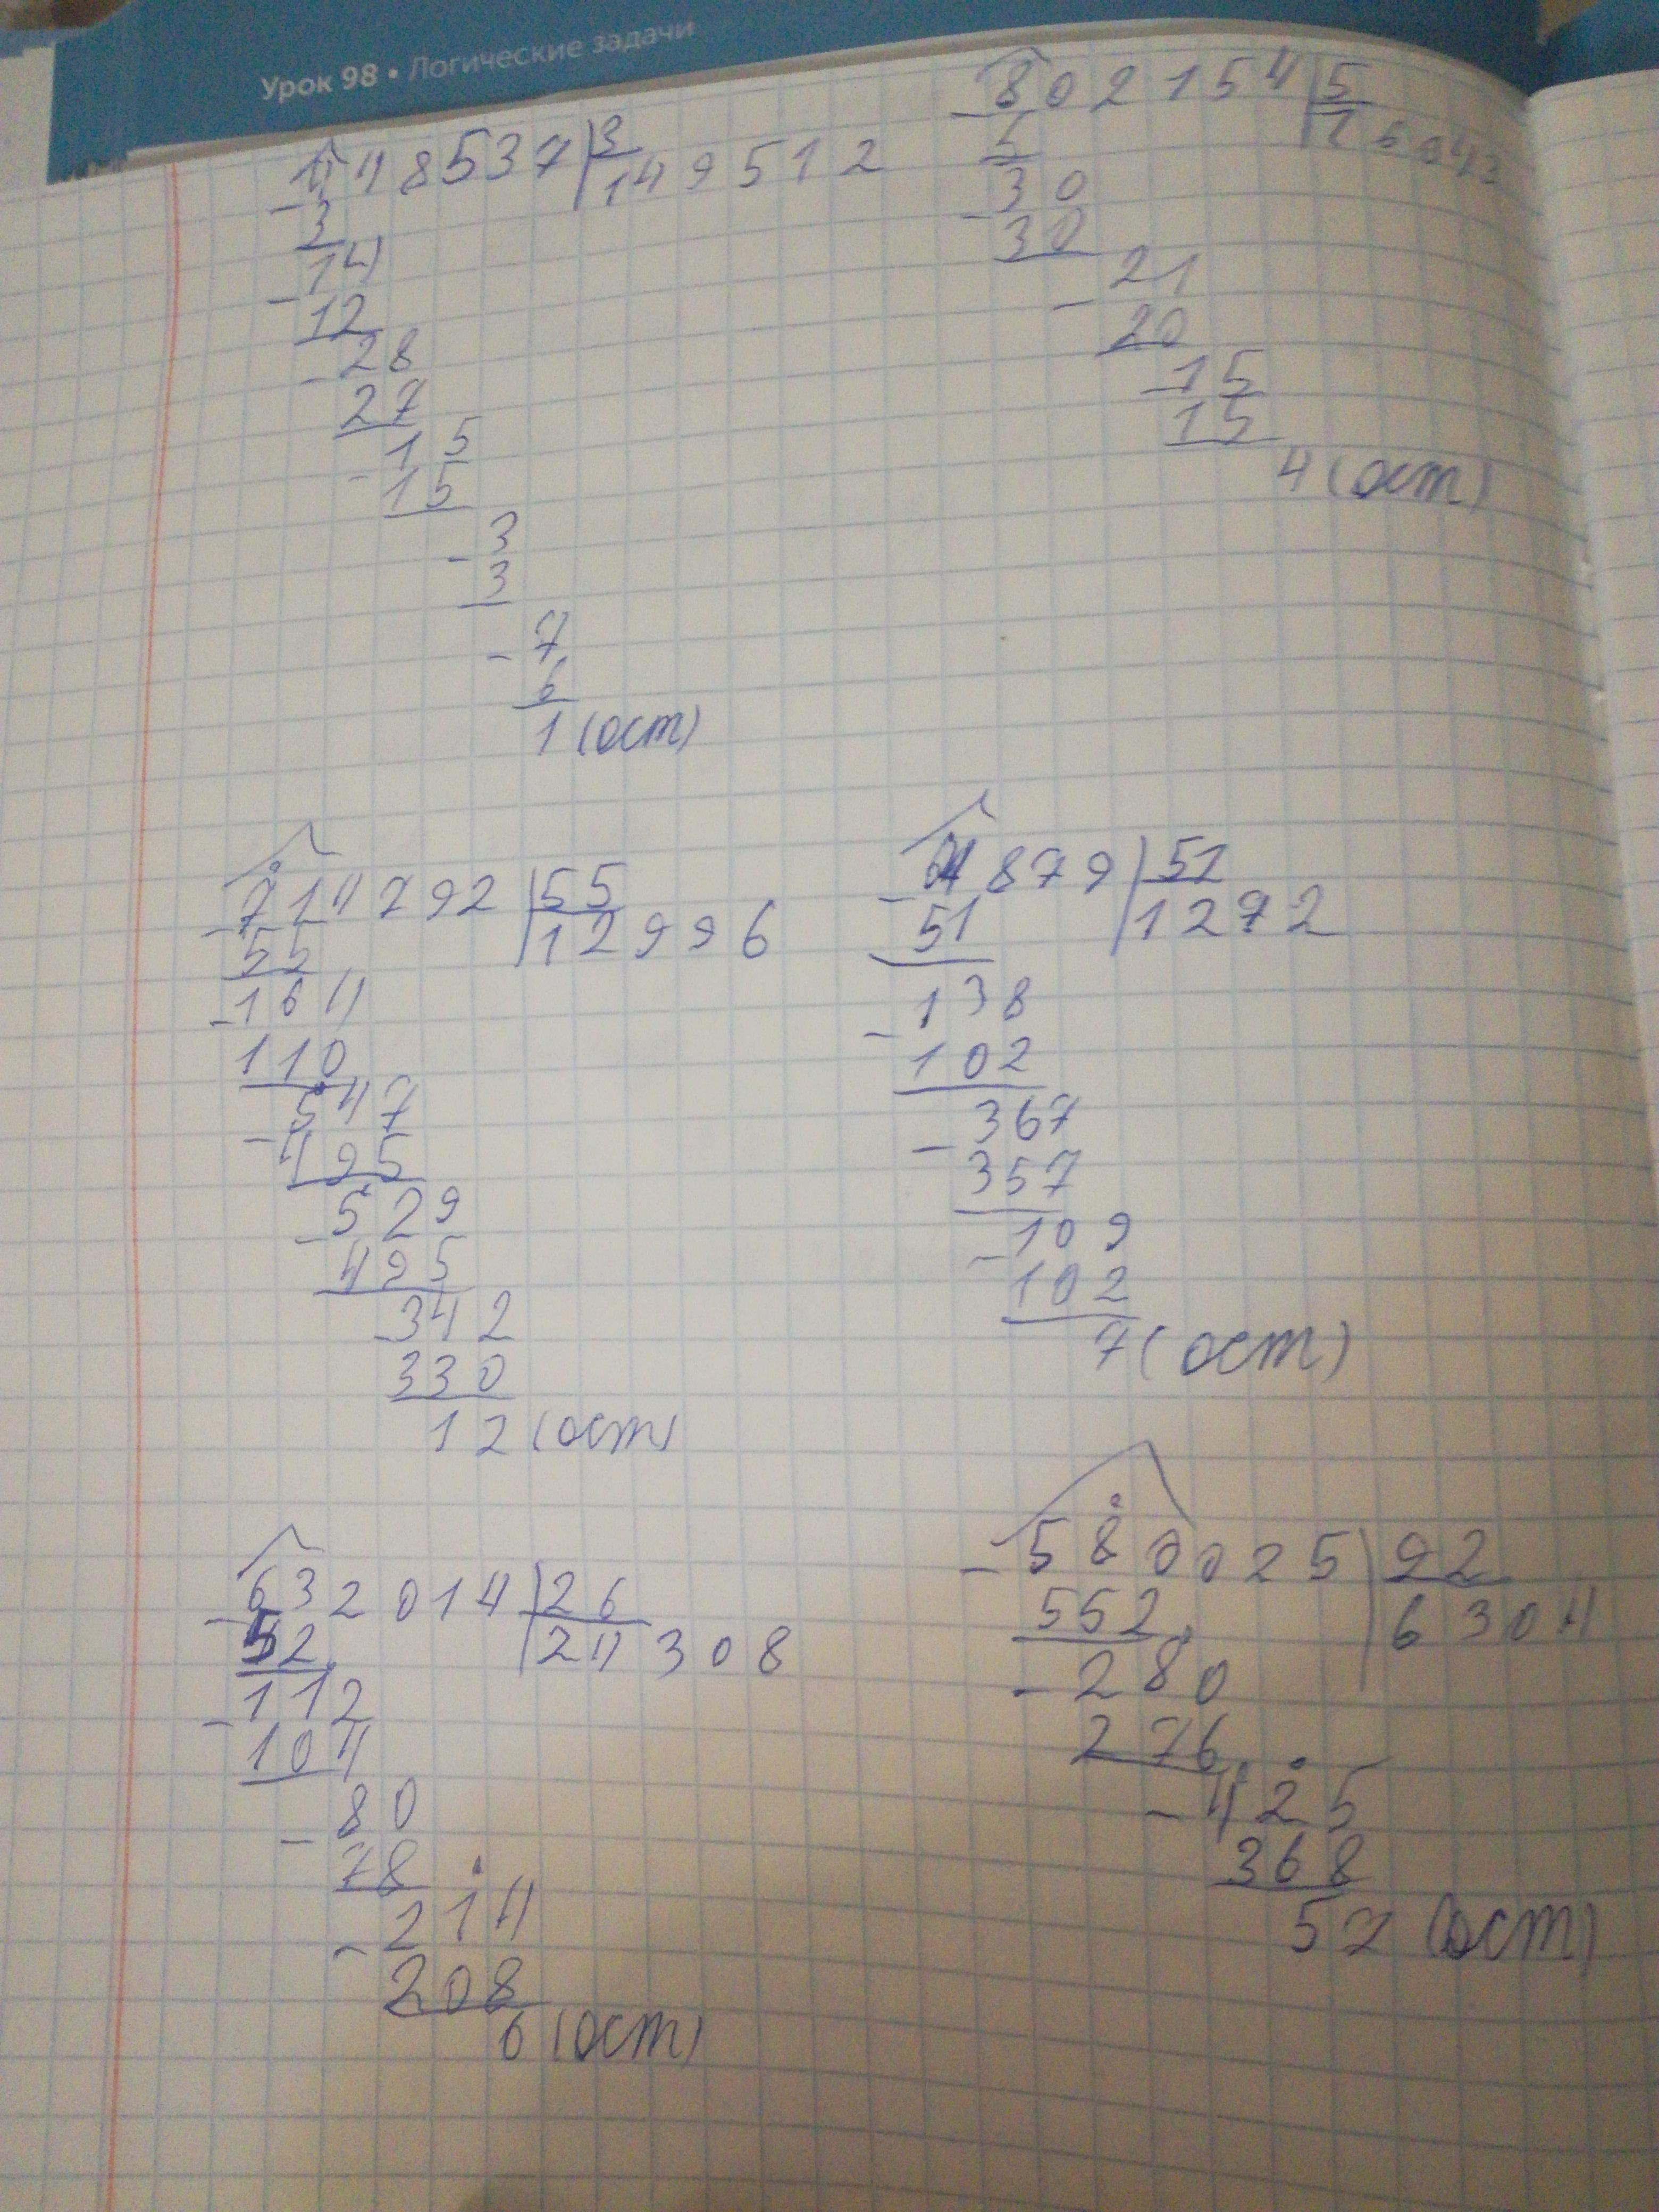 Урок 98 • Логические задачи
448537 3
149512
3
14
12
28
27
15
15
3
3
7
6
1 (ост)
802154 5
16043
5
30
30
21
20
15
15
4 (ост)
714792 55
12996
55
164
110
547
495
529
495
342
330
12 (ост)
64879 51
1272
51
138
102
367
357
109
102
7 (ост)
632014 26
24308
52
112
104
80
78
214
208
6 (ост)
580025 92
6304
552
280
276
425
368
57 (ост)